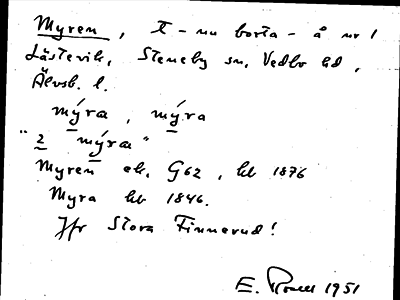 Myren, t - nu borta - å nr 1
Låstevik, Steneby sn, Vedbo hd,
Älvsb. l.
mýra, mýra
"2 mýra"
Myren ek. G62, kb 1876
Myra kb 1846.
Jfr Stora Finnerud!
E. 1951